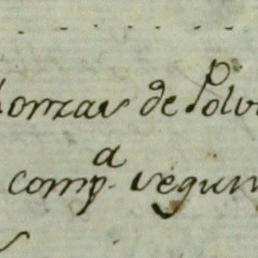 onzas de Polv
comp.ª segun